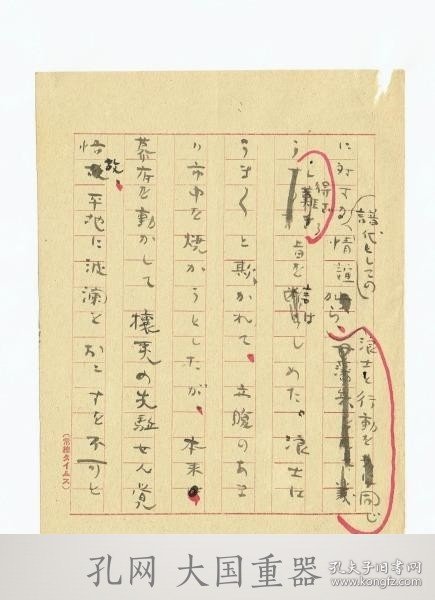 譜代としての
浪士と行動を 同じ
に対する情誼 から、
う し難き 旨を 言は しめた。浪士は
得ざる
うまくと欺かれて、立腹のあま
り市中を焼かうとしたが、本来
幕府を動かして攘夷の先駈せん覚
悟 故、平地に波瀾をおこすを不可と
(常総タイムス)
孔网 大国重器
孔夫子旧书网
www.kongfz.com